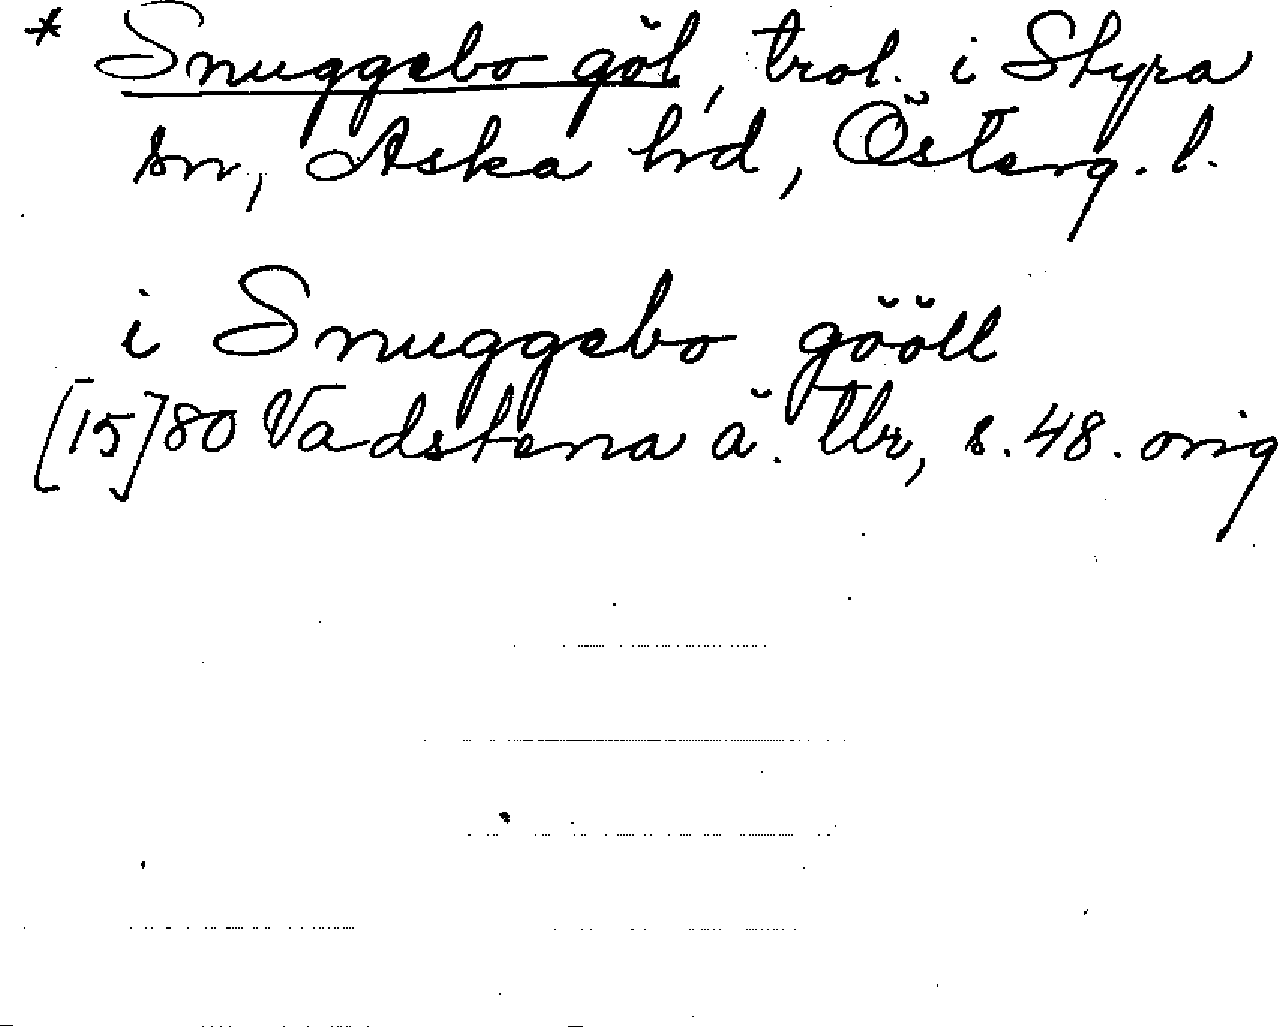 * Snuggebo göl, trol. i Styra
sn, Aska hrd, Österg. l.
i Snuggebo gööll
[15]80 Vadstena ä. tbr, s. 48. orig